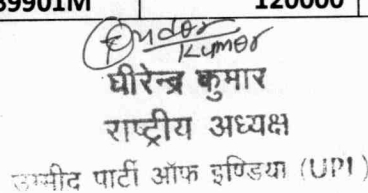 39901M 120000
Kumar
धीरेन्द्र कुमार
राष्ट्रीय अध्यक्ष
उम्मीद पार्टी ऑफ इण्डिया (UPI)